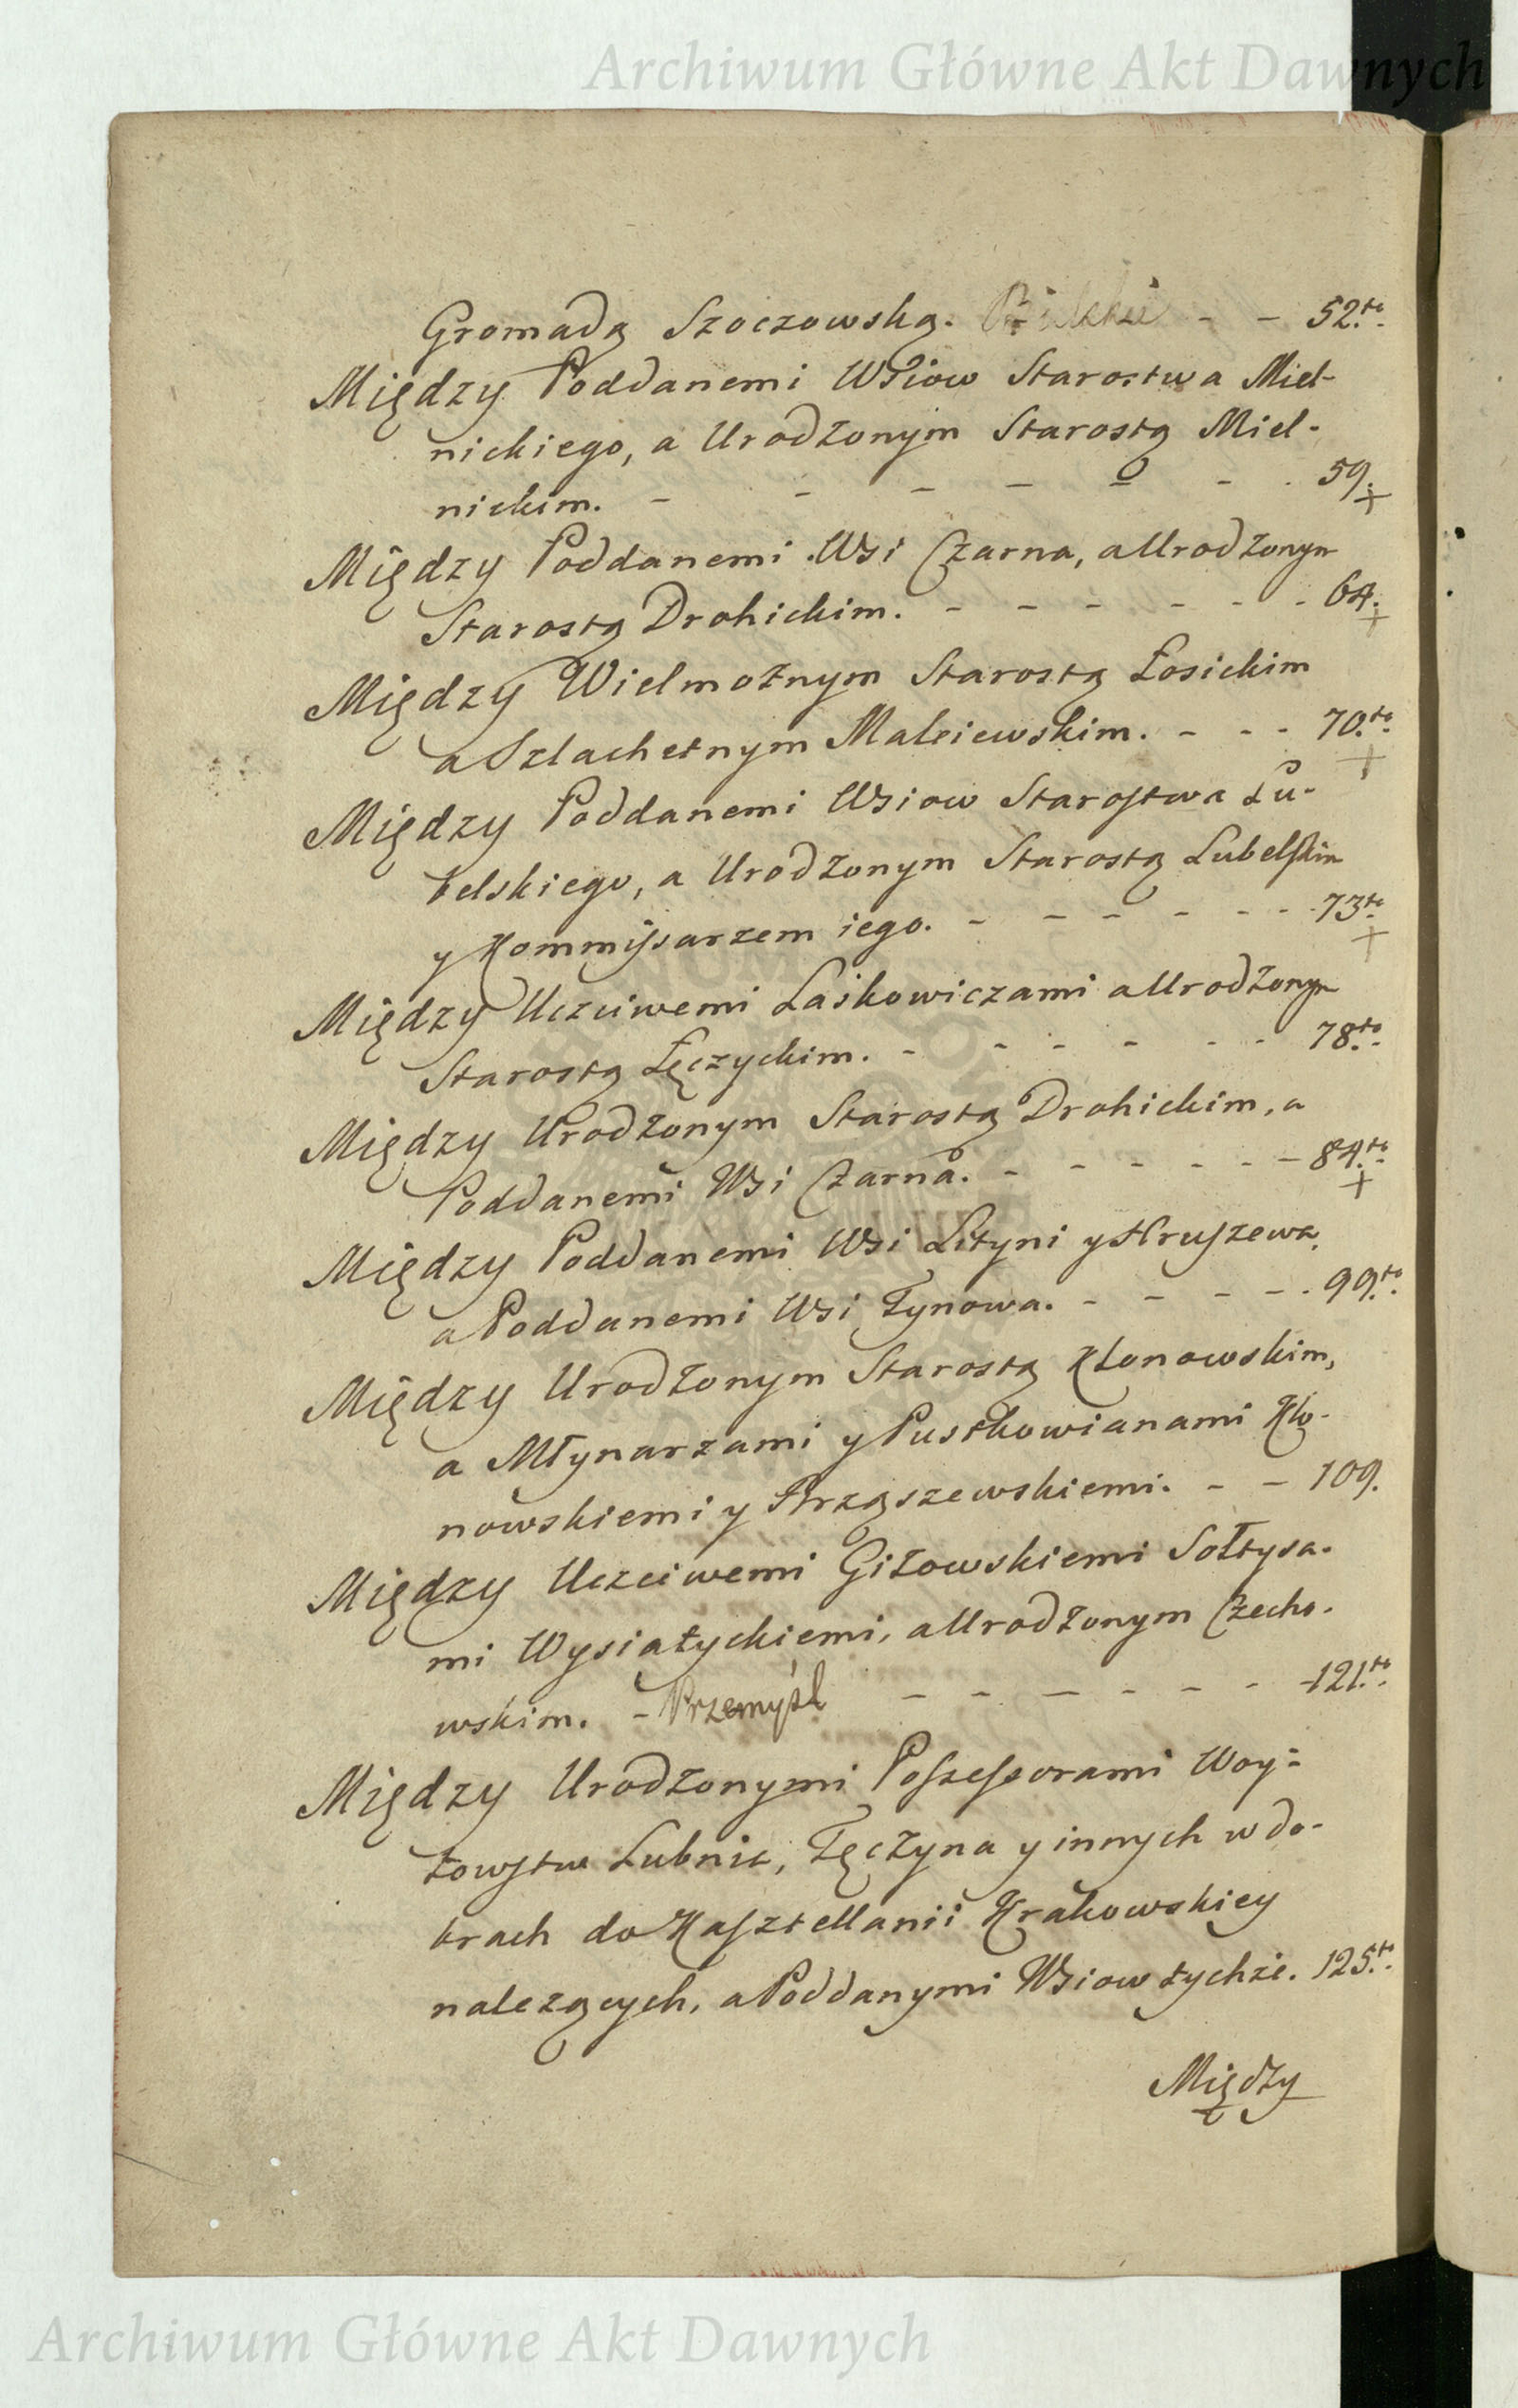 Archiwum Główne Akt Dawnych
Gromadą Szoczowską. - - 52.to
Między Poddanemi Wsiow Starostwa Miel-
nickiego, a Urodzonym Starostą Miel-
nickim. - - - - - - 59.
Między Poddanemi Wsi Czarna, a Urodzonym
Starostą Drohickim. - - - - - - - 64.
Między Wielmożnym Starostą Łosickim
a Szlachetnym Maleiewskim. - - - 70.to
Między Poddanemi Wsiow Starostwa Lu-
belskiego, a Urodzonym Starostą Lubelskim
y Kommissarzem iego. - - - - - - - 73.to
Między Uczciwemi Laskowiczami a Urodzonym
Starostą Łęczyckim. - - - - - - 78.to
Między Urodzonym Starostą Drohickim, a
Poddanemi Wsi Czarna. - - - - - - - 84.to
Między Poddanemi Wsi Lityni y Hruszewa,
a Poddanemi Wsi Tynowa. - - - - - 99.to
Między Urodzonym Starostą Kłonowskim,
a Młynarzami y Pustkowianami Kło-
nowskiemi y Brząszewskiemi. - - 109.
Między Uczciwemi Giżowskiemi Sołtysa-
mi Wysiatyckiemi, a Urodzonym Czecho-
wskim. - Przemyśl - - - - - - - 121.to
Między Urodzonymi Possessorami Woy-
towstw Lubnic, Tęczyna y innych w do-
brach do Kasztellanii Krakowskiey
należących, a Poddanymi Wsiow tychże. 125.to
Między
Archiwum Główne Akt Dawnych